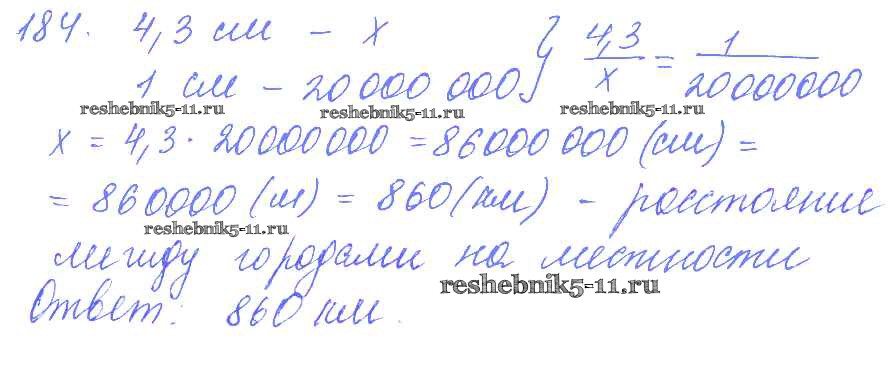 184. 4,3 см – x } 4,3/x = 1/20000000
1 см – 20000000
reshebnik5-11.ru reshebnik5-11.ru reshebnik5-11.ru
x = 4,3 · 20000000 = 86000000 (см) =
= 860000 (м) = 860 (км) – расстояние
reshebnik5-11.ru
между городами на местности
reshebnik5-11.ru
Ответ: 860 км.